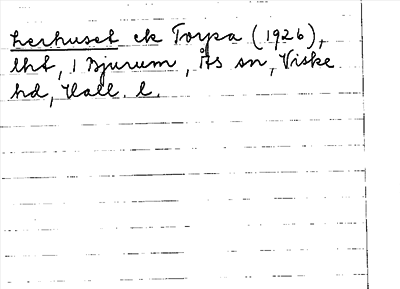 Lerhuset ek Torpa (1926),
lht, 1 Bjurum, Ås sn, Viske
hd, Hall. l.